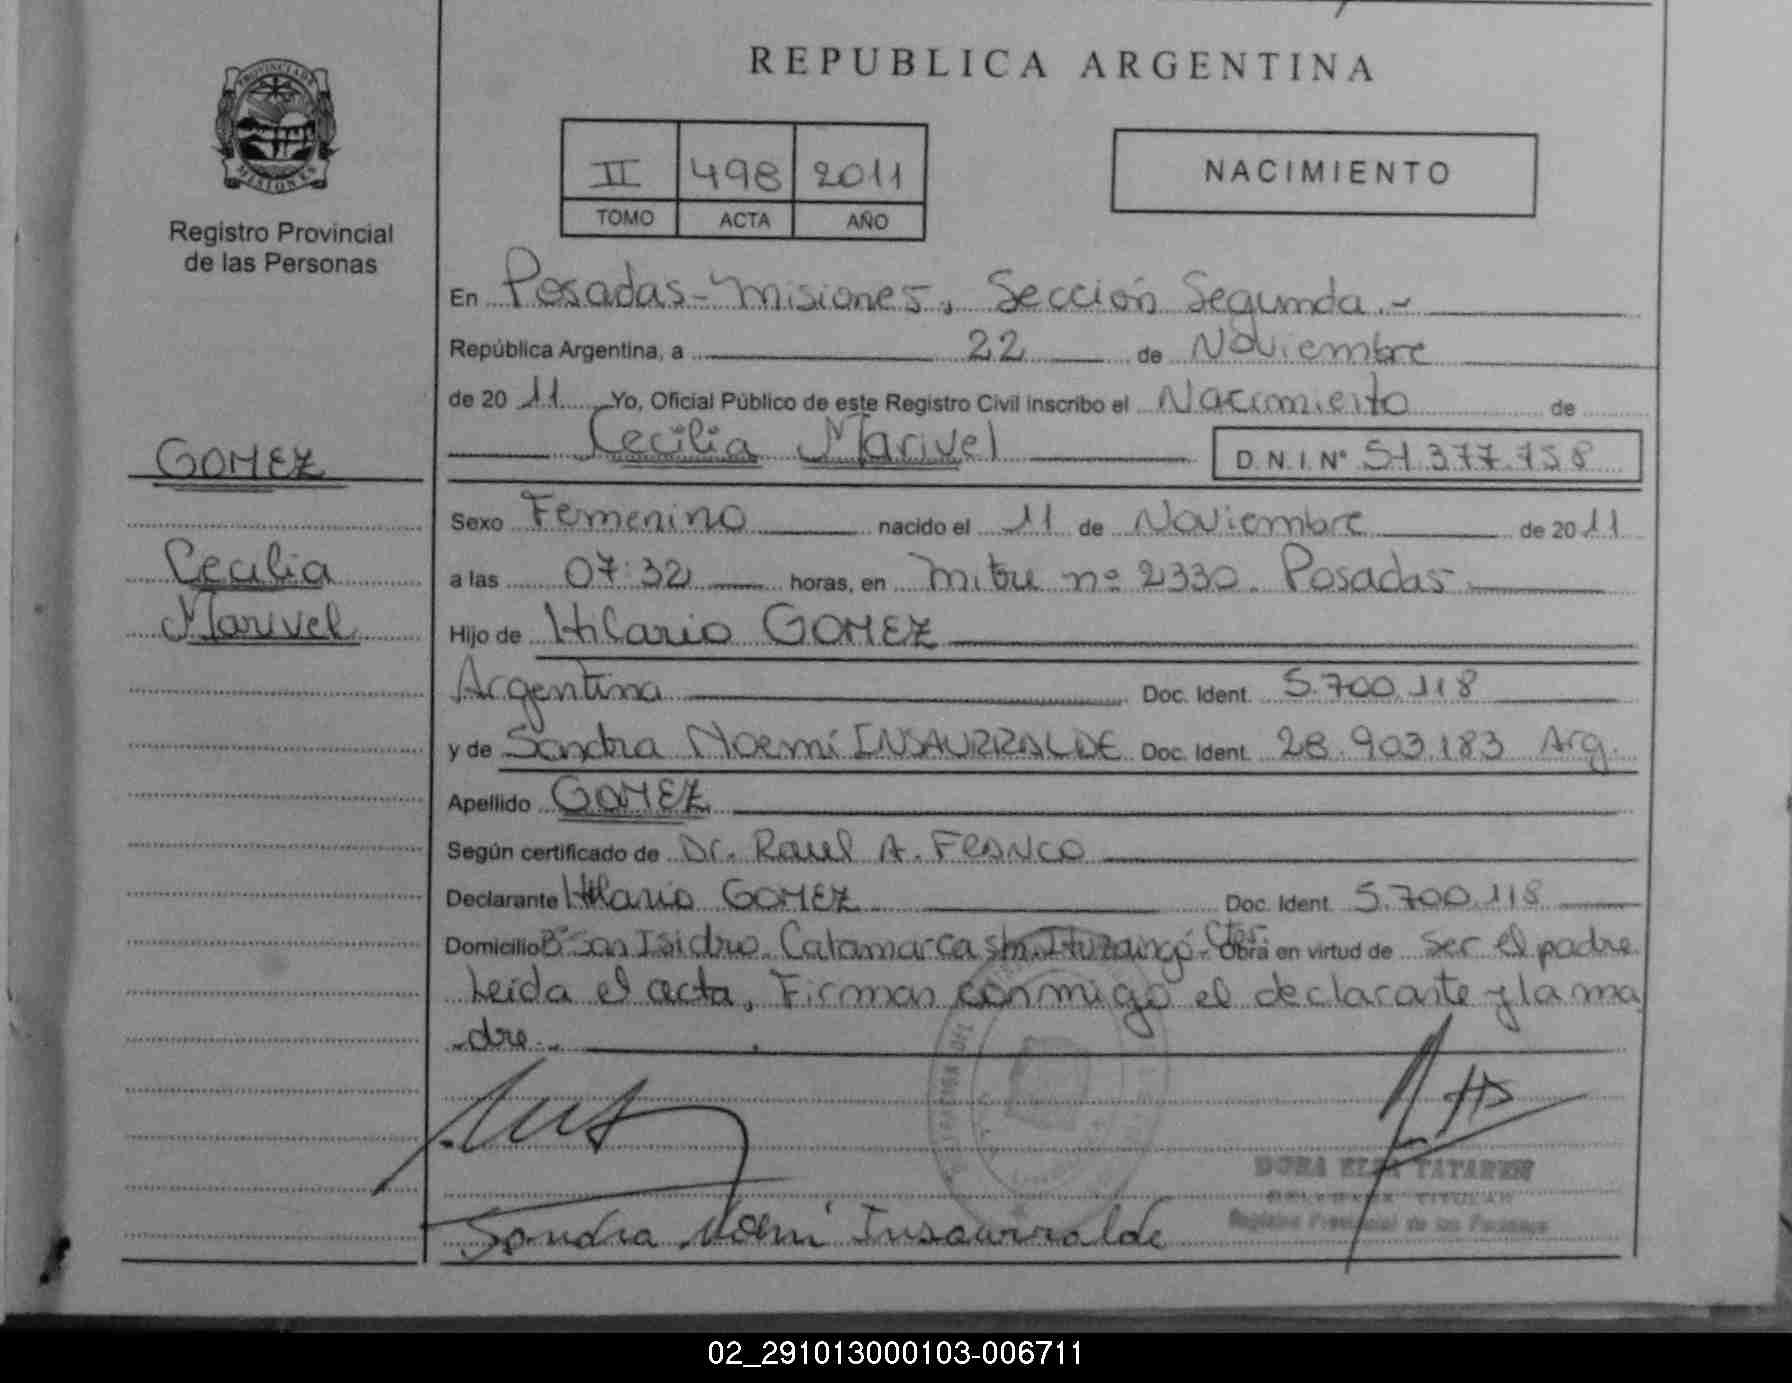 REPUBLICA ARGENTINA
PROVINCIA DE
MISIONES
Registro Provincial
de las Personas
II 498 2011
TOMO ACTA AÑO
NACIMIENTO
En Posadas - Misiones, Sección Segunda.-
República Argentina, a 22 de Noviembre
de 20 11 Yo, Oficial Público de este Registro Civil inscribo el Nacimiento de
Cecilia Marivel D.N.I. Nº 51.377.758
GOMEZ
Cecilia
Marivel
Sexo Femenino nacido el 11 de Noviembre de 20 11
a las 07:32 horas, en Mitre nº 2330. Posadas
Hijo de Hilario GOMEZ
Argentina Doc. Ident. 5.700.118
y de Sandra Noemí INSAURRALDE Doc. Ident. 28.903.183 Arg.
Apellido GOMEZ
Según certificado de Dr. Raul A. Franco
Declarante Hilario GOMEZ Doc. Ident. 5.700.118
Domicilio Bº San Isidro. Catamarca s/n. Ituzaingó - Ctes. Obra en virtud de ser el padre
Leida el acta, Firman conmigo el declarante y la ma
dre.
DORA ELSA TATAREN
DELEGADA TITULAR
Registro Provincial de las Personas
Sandra Noemi Insaurralde
02_291013000103-006711